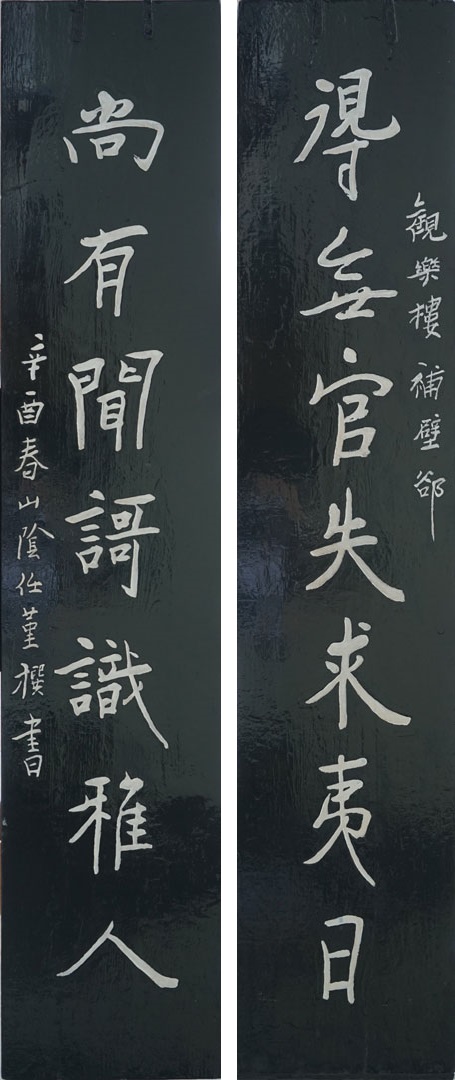 觀樂樓補壁郤
得無官失求夷日
尚有聞謌識雅人
辛酉春山陰任堇撰書